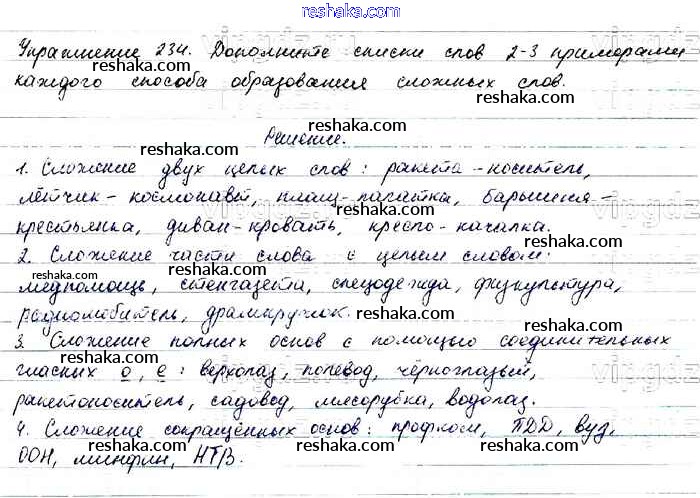 reshaka.com
Упражнение 234. Дополните списки слов 2-3 примерами
reshaka.com reshaka.com
каждого способа образования сложных слов.
reshaka.com
reshaka.com
Решение.
1. Сложение двух целых слов: ракета-носитель,
reshaka.com reshaka.com
лётчик-космонавт, плащ-палатка, барышня-
reshaka.com
крестьянка, диван-кровать, кресло-качалка.
reshaka.com
2. Сложение части слова с целым словом:
reshaka.com reshaka.com
медпомощь, стенгазета, спецодежда, физкультура,
reshaka.com
радиолюбитель, драмкружок.
reshaka.com
3. Сложение полных основ с помощью соединительных
reshaka.com reshaka.com
гласных о, е: верхолаз, полевод, черноглазый,
reshaka.com
ракетоноситель, садовод, мясорубка, водолаз.
reshaka.com
4. Сложение сокращённых основ: профком, ПДД, вуз,
reshaka.com reshaka.com
ООН, минфин, НТВ.
reshaka.com